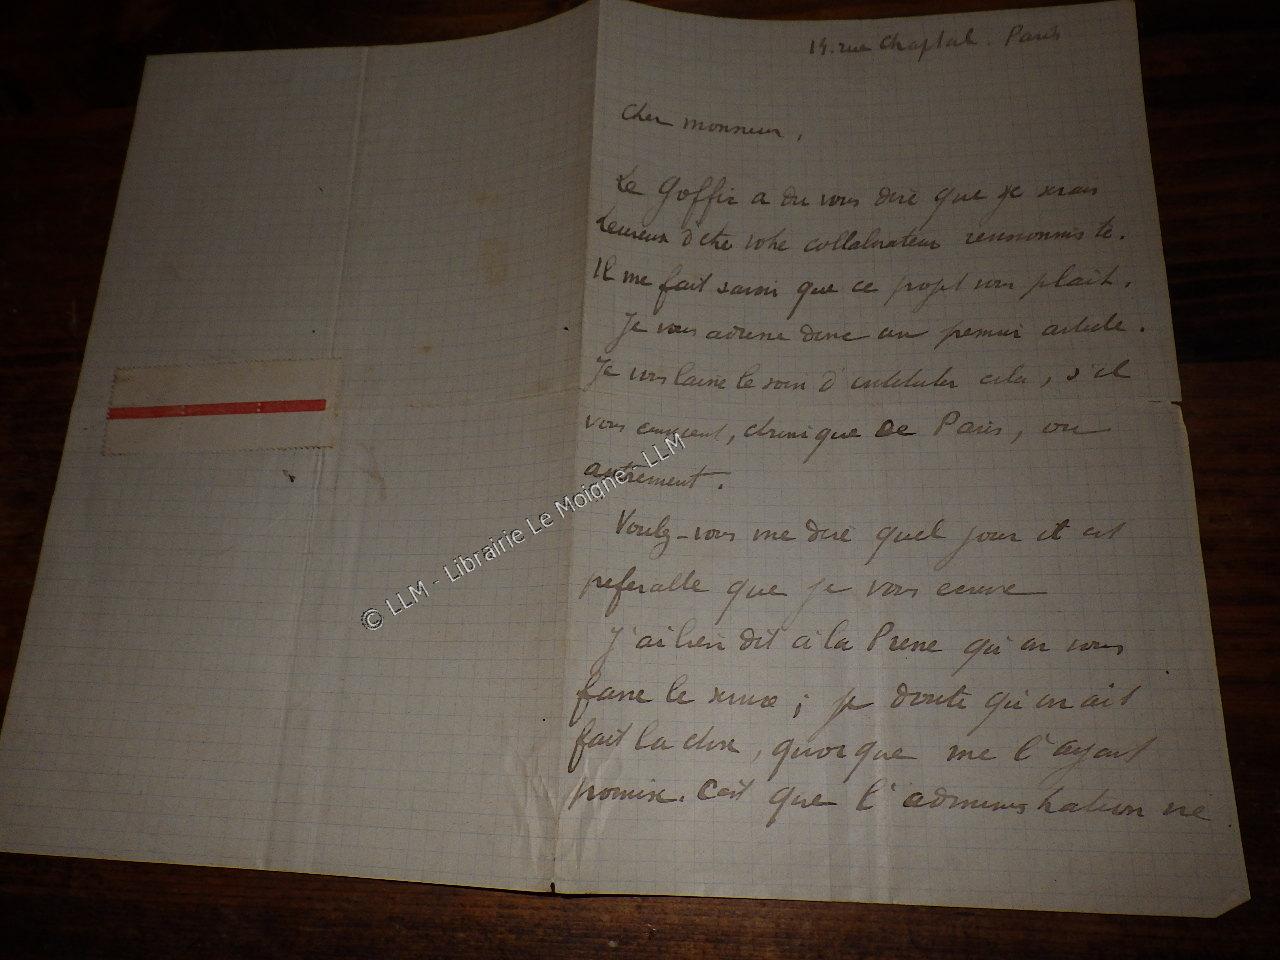 14. rue Chaptal. Paris
Cher monsieur,
Le Goffic a du vous dire que je serais
heureux d'être votre collaborateur
Il me fait savoir que ce projet vous plait.
Je vous adresse donc un premier article.
Je vous laisse le soin d'intituler cela, s'il
vous convient, chronique de Paris, ou
autrement.
Voulez-vous me dire quel jour il est
preferable que je vous écrive
J'ai bien dit à la Presse qu'on vous
fasse le service; je doute qu'on ait
fait la chose, quoique me l'ayant
promise. C'est que l'administration ne
© LLM - Librairie Le Moigne - LLM